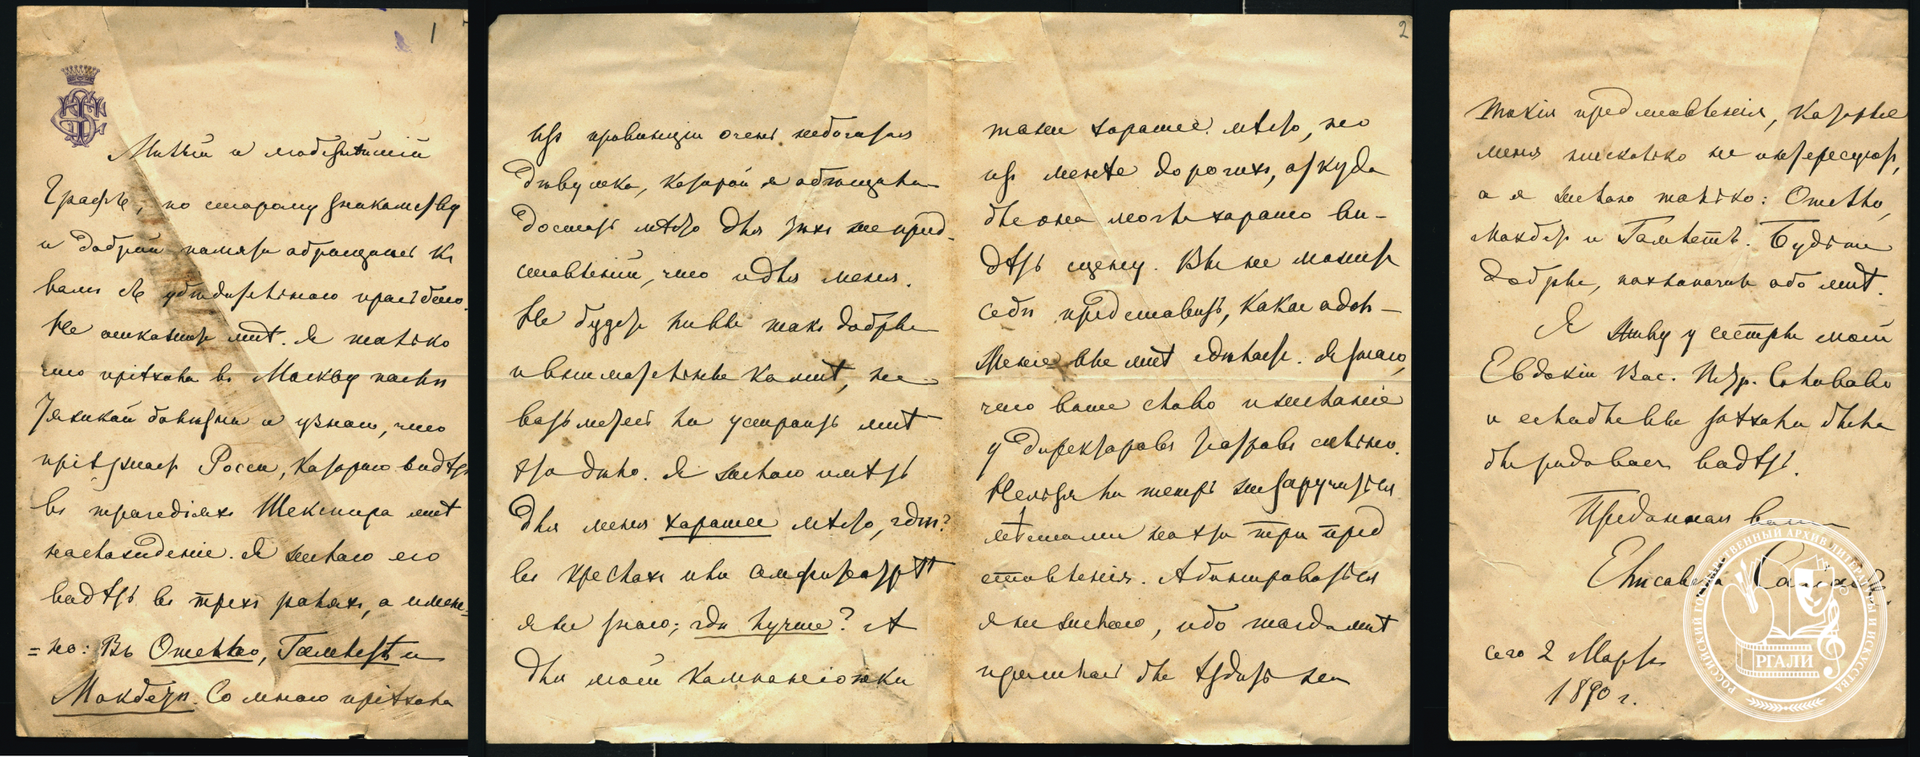 1
Милый и любезнѣйшій
Графъ, по старому знакомству
и доброй памяти обращаюсь къ
вамъ съ убѣдительною просьбою.
Не откажите мнѣ. Я только
что пріѣхала въ Москву послѣ
тяжкой болѣзни и узнаю, что
пріѣзжает Росси, котораго видѣть
въ трагедіяхъ Шекспира мнѣ
наслажденіе. Я желаю его
видѣть въ трехъ роляхъ, а имен-
=но: Въ Отелло, Гамлетѣ и
Макбетѣ. Со мною пріѣхала
2
изъ провинціи очень небогатая
дѣвушка, которой я обѣщала
достать мѣсто для тѣхъ же пред-
ставленій, что и для меня.
Не будете ли вы такъ добры
и внимательны ко мнѣ, не
возьметесь ли устроить мнѣ
это дѣло. Я желаю имѣть
для меня хорошее мѣсто, гдѣ?
въ креслахъ или амфитеатрѣ
я не знаю; гдѣ лучше? А
для моей компаніонки
тоже хорошее мѣсто, но
изъ менѣе дорогихъ, откуда
бы она могла хорошо ви-
дѣть сцену. Вы не можете
себѣ представить, какое одол-
женіе вы мнѣ сдѣлаете. Я знаю,
что ваше слово и желаніе
у директоровъ театровъ сильно.
Нельзя ли теперь же заручиться
мѣстами на эти три пред
ставленія. Абонироваться
я не желаю, ибо тогда мнѣ
пришлось бы ѣздить на
такія представленія, которые
меня нисколько не интересуютъ,
а я желаю только: Отелло,
Макбетъ и Гамлетъ. Будьте
добры, похлопочите обо мнѣ.
Я живу у сестры моей
Евдокіи Вас.
и если бы вы заѣхали была
бы рада васъ видѣть.
Преданная вамъ
Елисавета
сего 2 Марта
1890 г.
РОССИЙСКИЙ ГОСУДАРСТВЕННЫЙ АРХИВ ЛИТЕРАТУРЫ И ИСКУССТВА
РГАЛИ